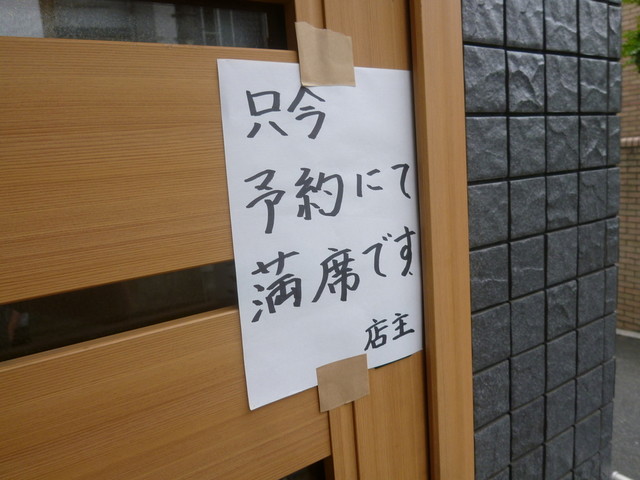 只今
予約にて
満席です
店主